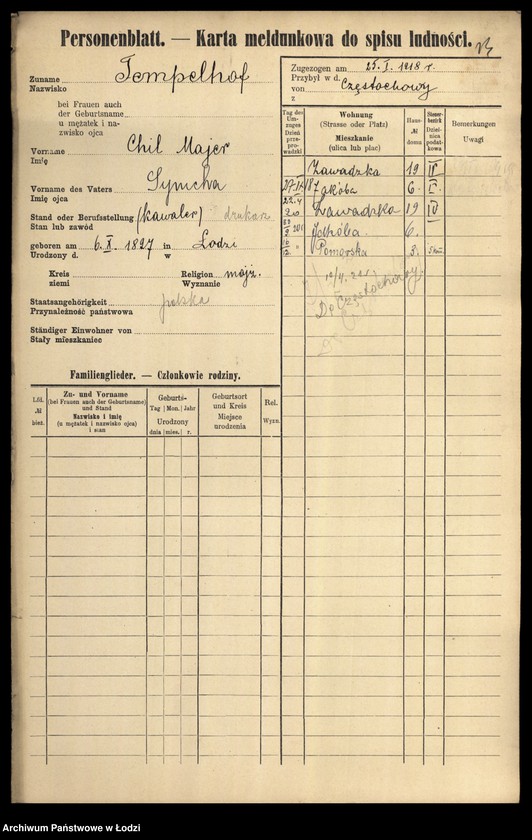 Personenblatt. — Karta meldunkowa do spisu ludności.
Zuname Tempelhof
Nazwisko
bei Frauen auch
der Geburtsname
u mężatek i na-
zwisko ojca
Vorname Chil Majer
Imię
Vorname des Vaters Symcha
Imię ojca
Stand oder Berufsstellung (kawaler) drukarz
Stan lub zawód
geboren am 6. X. 1897 in Łodzi
Urodzony d. w
Kreis Religion mojż.
ziemi Wyznanie
Staatsangehörigkeit polska
Przynależność państwowa
Ständiger Einwohner von
Stały mieszkaniec
Zugezogen am 25. I. 1918 r.
Przybył w d.
von Częstochowy
z
Tag der Umzuges Dzień przeprowadzki
Wohnung
(Strasse oder Platz)
Mieszkanie
(ulica lub plac)
Haus-
№
domu
Steuerbezirk Dzielnica podatkowa
Bemerkungen
Uwagi
Zawadzka 19 IV
Jakóba 6.
Zawadzka 19 IV
Jakóba 6.
Pomorska 3.
Do Częstochowy.
Familienglieder. — Członkowie rodziny.
Lfd.
№
bież.
Zu- und Vorname
(bei Frauen auch der Geburtsname)
und Stand
Nazwisko i imię
(u mężatek i nazwisko ojca)
i stan
Geburts-
Tag Mon. Jahr
Urodzony
dnia mies. r.
Geburtsort
und Kreis
Miejsce
urodzenia
Rel.
Wyzn.
Archiwum Państwowe w Łodzi